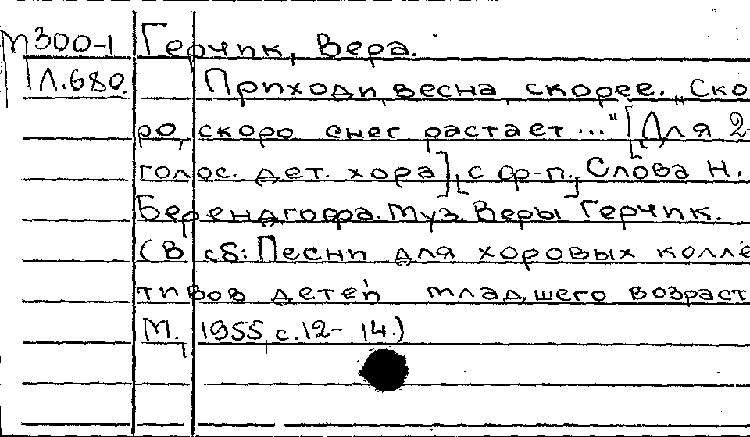 М300-1 Герчик, Вера.
Л.680. Приходи, весна, скорее. „Ско
ро, скоро снег растает..." [Для 2-
голос. дет. хора], [с ф-п.], Слова Н.
Берендгофа. Муз. Веры Герчик.
(В сб: Песни для хоровых колле
тивов детей младшего возраст
М., 1955, с.12-14.)